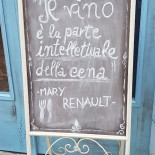 Il vino
è la parte
intellettuale
della cena
-MARY
RENAULT-